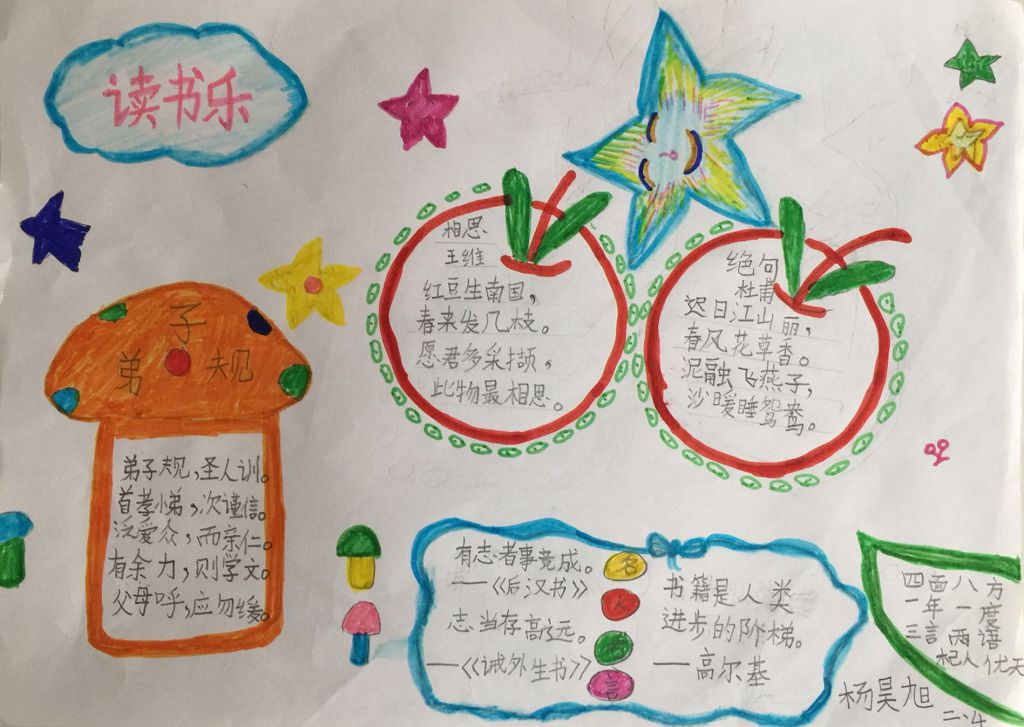 读书乐
相思
王维
红豆生南国，
春来发几枝。
愿君多采撷，
此物最相思。
绝句
杜甫
迟日江山丽，
春风花草香。
泥融飞燕子，
沙暖睡鸳鸯。
弟子规
弟子规，圣人训。
首孝悌，次谨信。
泛爱众，而亲仁。
有余力，则学文。
父母呼，应勿缓。
有志者事竟成。
——《后汉书》
志当存高远。
——《诫外生书》
名
人
名
言
书籍是人类
进步的阶梯。
—高尔基
四面八方
一年一度
三言两语
杞人优天
杨昊旭
二.4